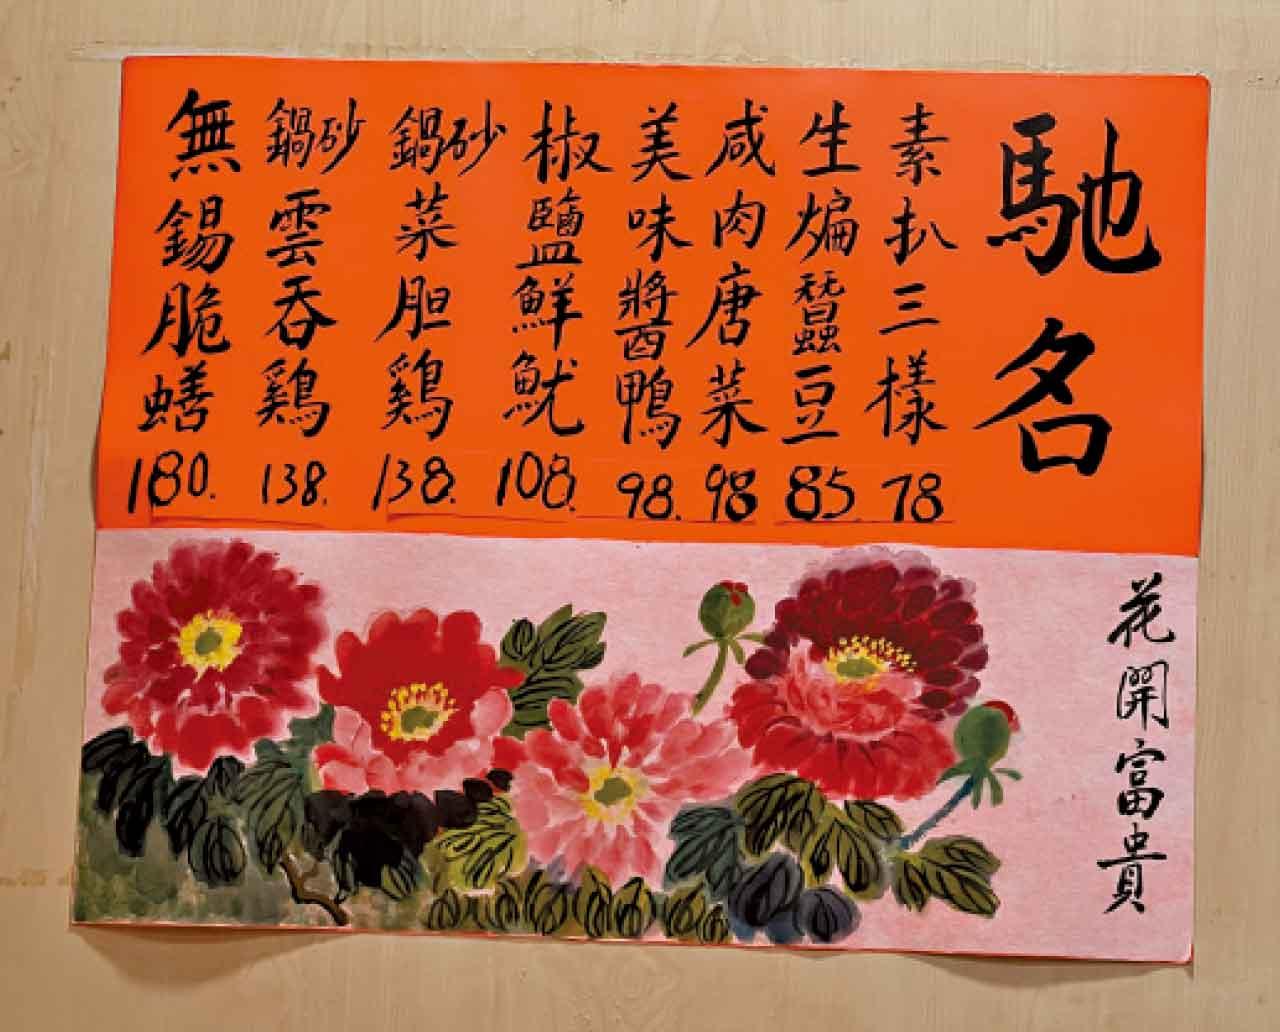 馳名
素扒三樣 78
生煸蠶豆 85
咸肉唐菜 98
美味醬鴨 98.
椒鹽鮮魷 108.
砂鍋菜胆鷄 138.
砂鍋雲吞鷄 138.
無錫脆蟮 180.
花開富貴